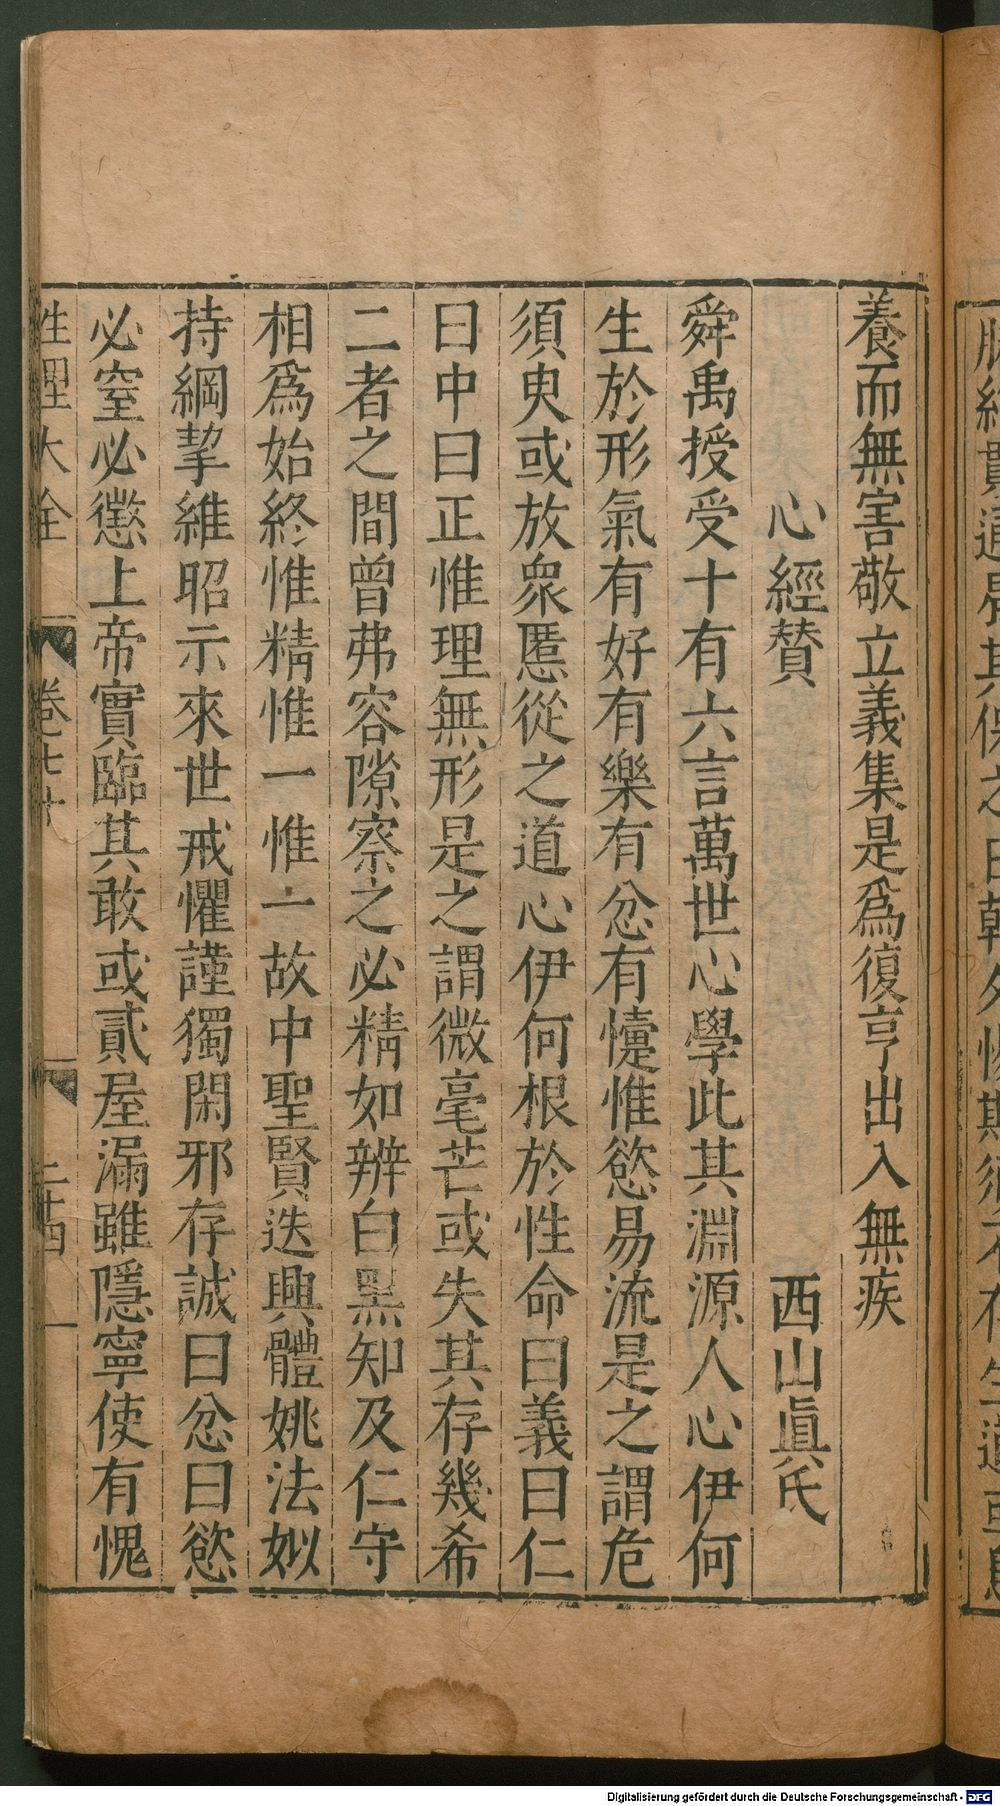 養而無害敬立義集是爲復亨出入無疾
心經賛 西山眞氏
舜禹授受十有六言萬世心學此其淵源人心伊何
生於形氣有好有樂有忿有懥惟慾易流是之謂危
須臾或放衆慝從之道心伊何根於性命曰義曰仁
曰中曰正惟理無形是之謂微毫芒或失其存幾希
二者之間曾弗容隙察之必精如辨白黑知及仁守
相爲始終惟精惟一惟一故中聖賢迭興體姚法姒
持綱挈維昭示來世戒懼謹獨閑邪存誠曰忿曰慾
必窒必懲上帝實臨其敢或貳屋漏雖隱寧使有愧
性理大全 卷七十 二十四
Digitalisierung gefördert durch die Deutsche Forschungsgemeinschaft - DFG